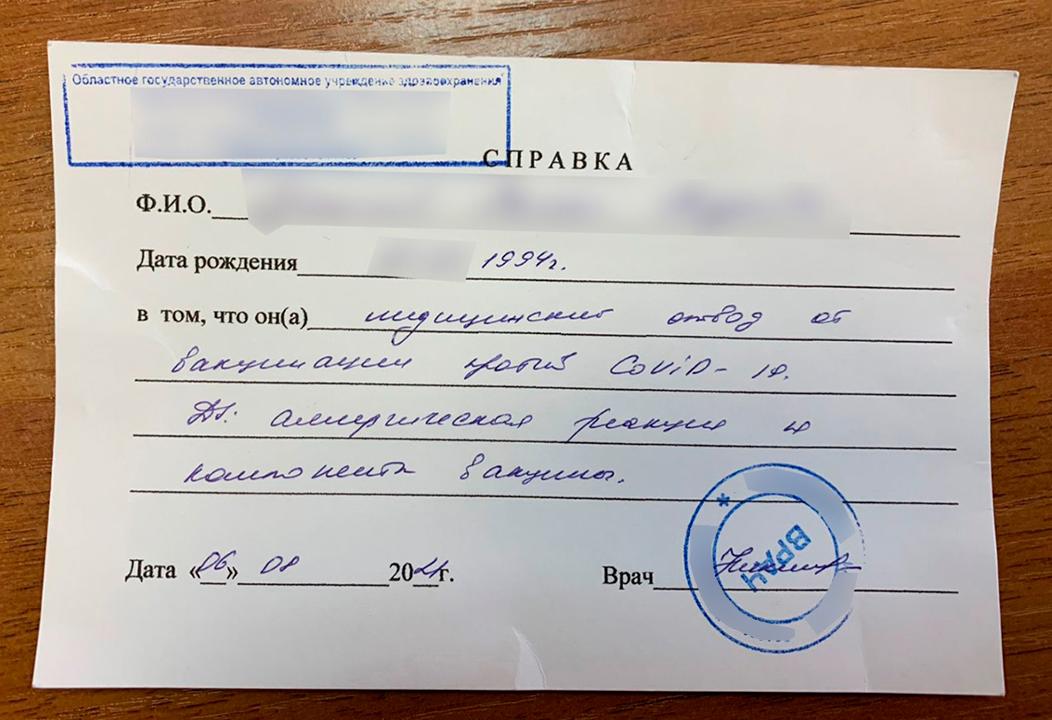 Областное государственное автономное учреждение здравоохранения
СПРАВКА
Ф.И.О.
Дата рождения 1994г.
в том, что он(а) медицинский отвод от
вакцинации против CoViD-19.
DS: аллергическая реакция на
компоненты вакцины.
Дата «06» 08 2021г. Врач
ВРАЧ